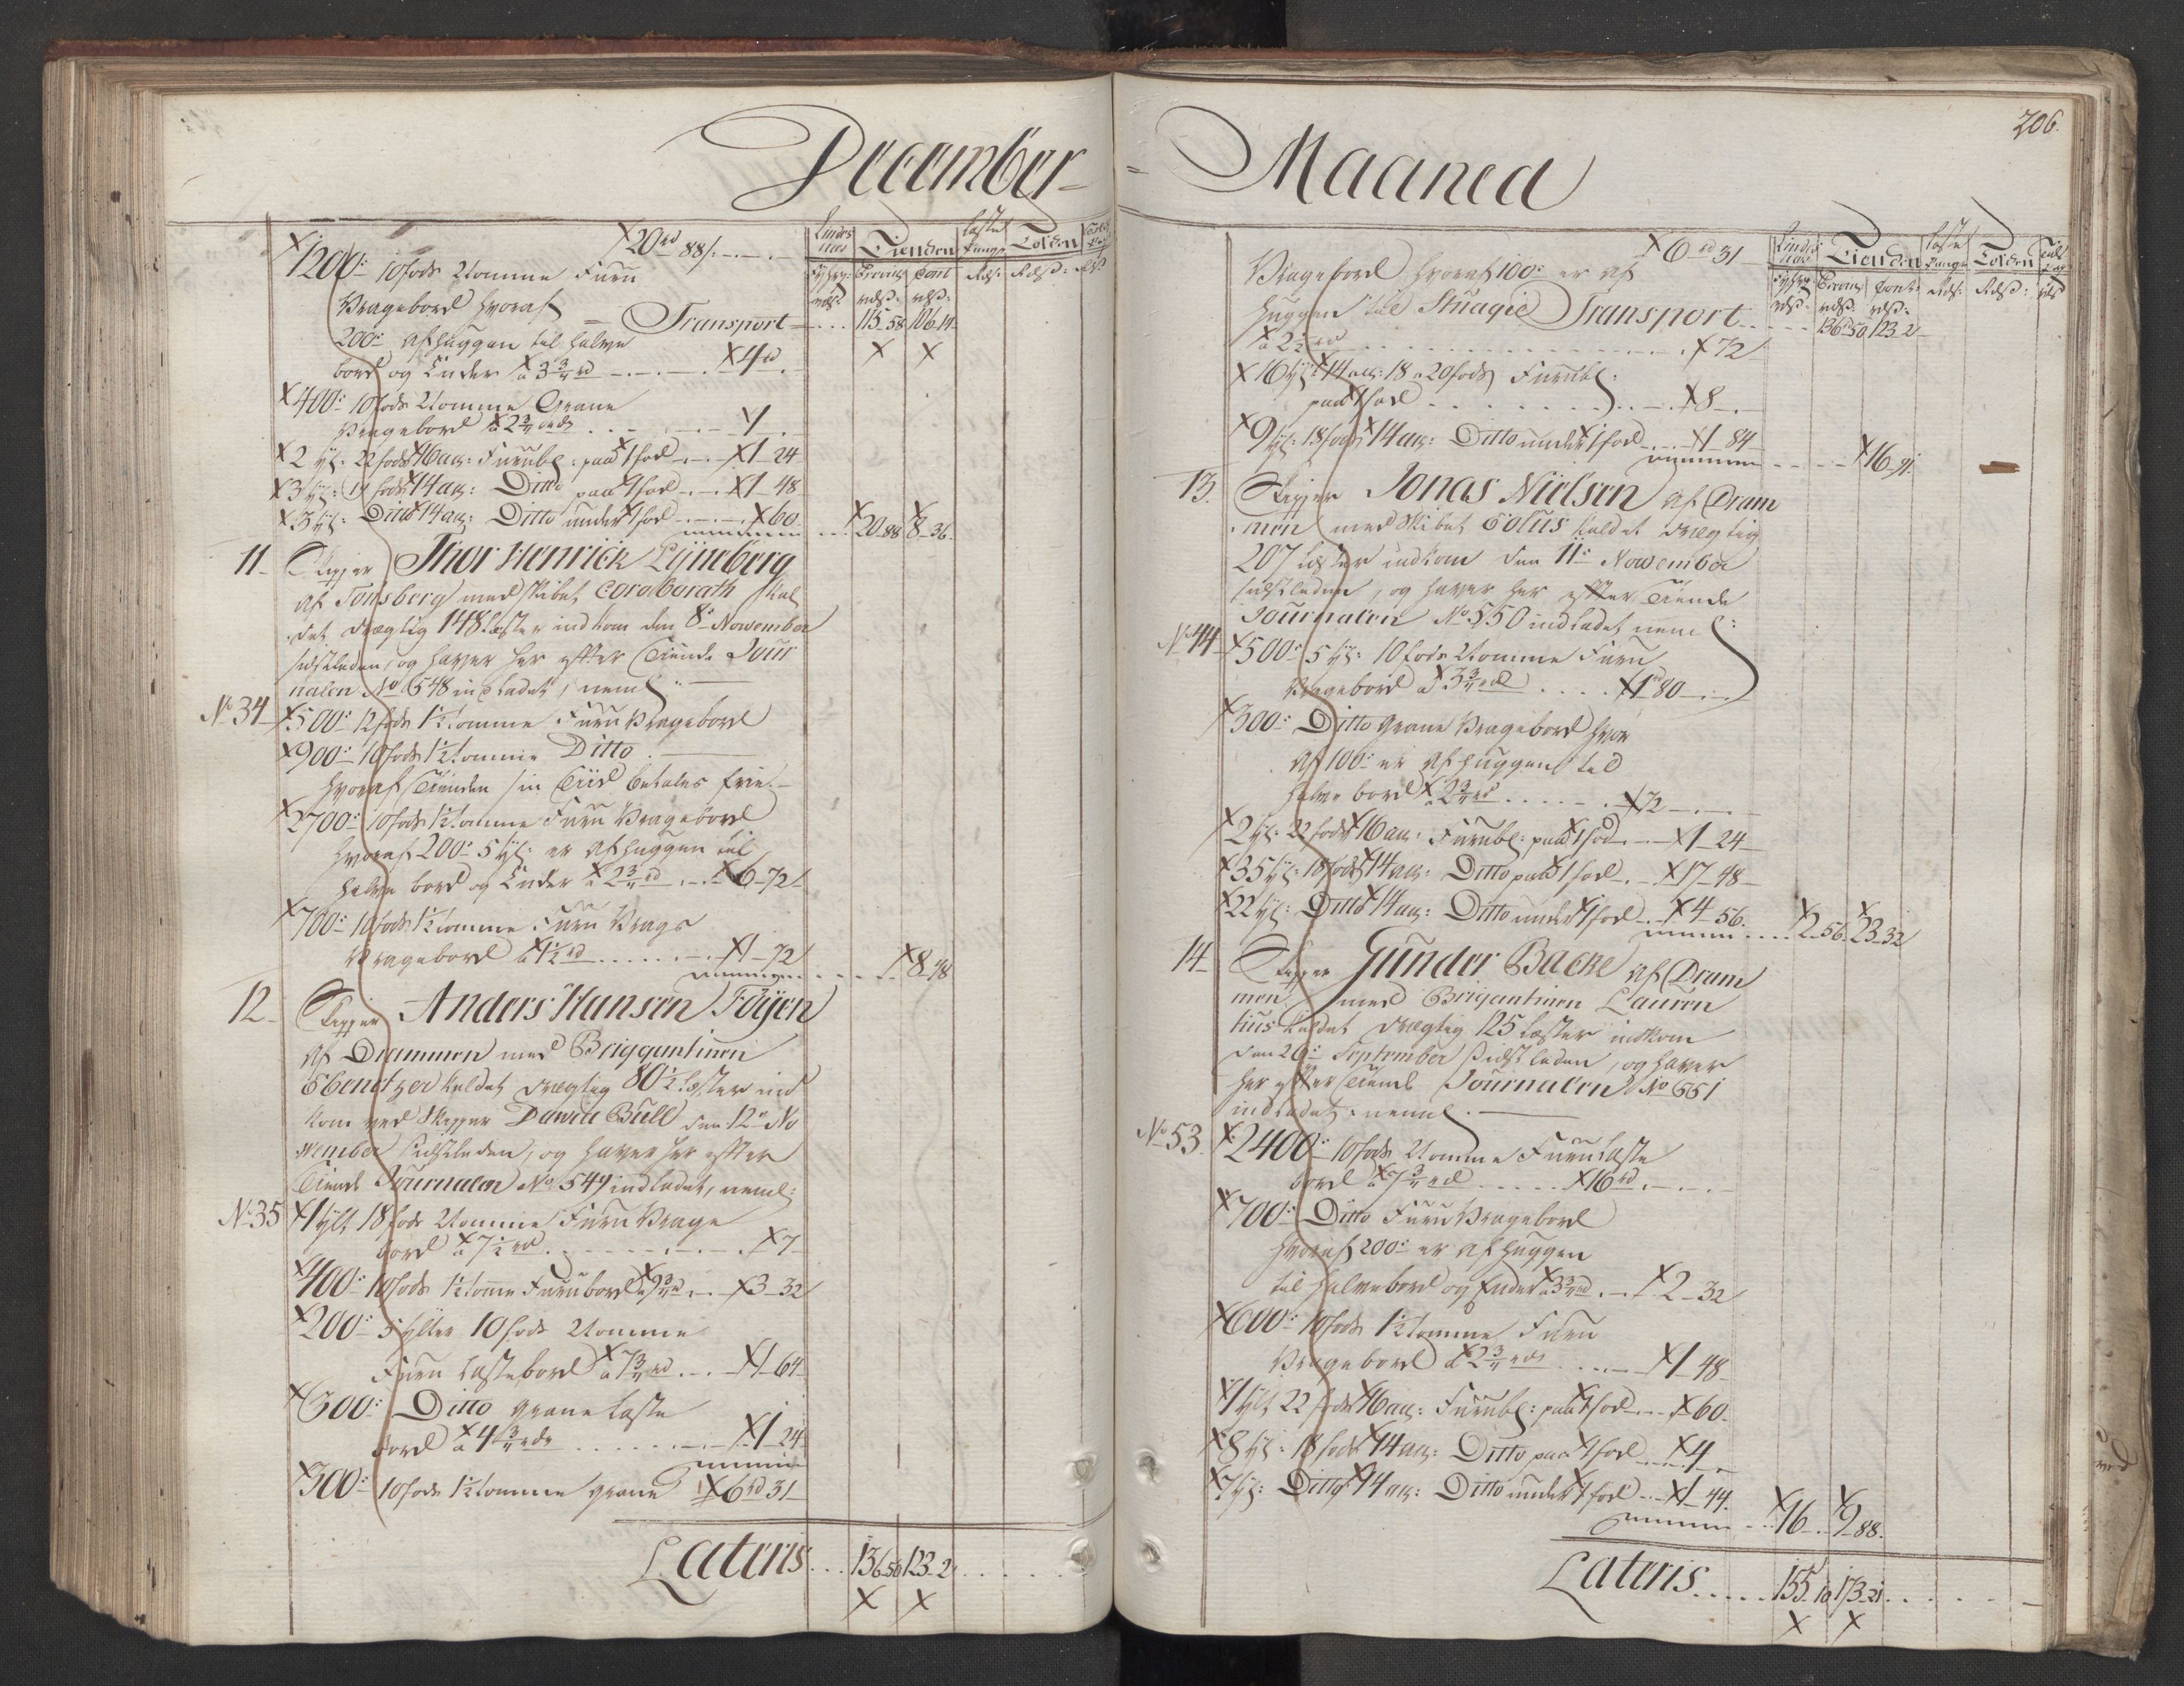 December =
20 rd 88 s
1200: 10 fods 2 tomme Furu
Vragebord hvoraf
Transport 115.58 106.14
200: afhuggen til halve
bord og Ender a 3¾ rd 4 rd
400: 10 fods 2 tomme Grane
Vragebord a 2¾ rds 1
2 ylt: 22 fods 16 al: Furubl: paa 1 fod 1 24
3 ylt: 19 fods 14 al: Ditto paa 1 fod 1 48
3 ylt: Ditto 14 al: Ditto under 1 fod 60
20 88 8 36
11 Skipper Thor Henrich Lynberg
af Tønsberg med skibet Corolborath kal
det drægtig 148 læster indkom den 8de November
sidstleden, og haver her efter Tiende Jour
nalen No 548 indladet, neml:
No 34 500: 12 fods 1½ tomme Furu Vragebord
900: 10 fods 1½ tomme Ditto
hvoraf Tienden sin Tiid betales frie
2700: 10 fods 1½ tomme Furu Vragebord
hvoraf 200: 5 ylt: er afhuggen til
halve bord og Ender a 2¾ rd 6 72
700: 10 fods 1½ tomme Furu Vrags
Vragebord a 1½ rd 1 72
8 48
12 Skipper Anders Hansen Föyen
af Drammen med Briggantinen
Ebenetzer kaldet drægtig 80½ læster ind
kom ved Skipper David Bull den 12te No
vember sidstleden, og haver her efter
Tiende Journalen No 549 indladet, neml:
No 35 1 ylt 18 fods 2 tomme Furu Vrage
bord a 7½ rd 7
400: 10 fods 1½ tomme Furu bord a 9¾ rd 3 32
200: 5 ylter 10 fods 2 tomme
Furu lastebord a 7¾ rd 1 64
300: Ditto grane laste
bord a 4¾ rds 1 24
300: 10 fods 1½ tomme grane 6 rd 31
Lateris 136.50 123.2
Maaned
206.
6 rd 31
Vragebord hvoraf 100: er af
huggen til Stuagie Transport 136.50 123.2
a 2½ rd 72
16 ylt 14 al: 18 a 20 fods Furubl:
paa 1 fod 8
9 ylt: 18 fods 14 al: Ditto under 1 fod 1 84
16 91
13. Skipper Jonas Nielsen af Dram
men med Skibet Eolus kaldet drægtig
207 læster indkom den 11te November
sidstleden, og haver her efter Tiende
Journalen No 550 indladet neml:
No 44 500: 5 ylt: 10 fods 2 tomme Furu
Vragebord a 3¾ rd 1 rd 80
300: Ditto grane Vragebord hvor
af 100: er afhuggen til
halve bord a 2¾ rd 72
2 ylt: 22 fods 16 al: Furubl: paa 1 fod 1 24
35 ylt: 18 fods 14 al: Ditto paa 1 fod 17 48
22 ylt: Ditto 14 al: Ditto under 1 fod 4 56
2 56 23 32
14 Skipper Gunder Backe af Dram
men med Brigantinen Lauren
tius kaldet drægtig 125 læster indkom
den 26de September sidstleden, og haver
her efter Tiende Journalen No 551
indladet neml:
No 53. 2400: 10 fods 2 tomme Furu laste
bord a 7¾ rd 16 rd
700: Ditto Furu Vragebord
hvoraf 200: er afhuggen
til halvebord og Ender a 3¾ rd 2 32
600: 10 fods 1½ tomme Furu
Vragebord a 2¾ rds 1 48
1 ylt 22 fods 16 al: Furubl: paa 1 fod 60
8 ylt: 18 fods 14 al: Ditto paa 1 fod 4
7 ylt: Ditto 14 al: Ditto under 1 fod 1 44
16 9 88
Lateris 155.10 173.21